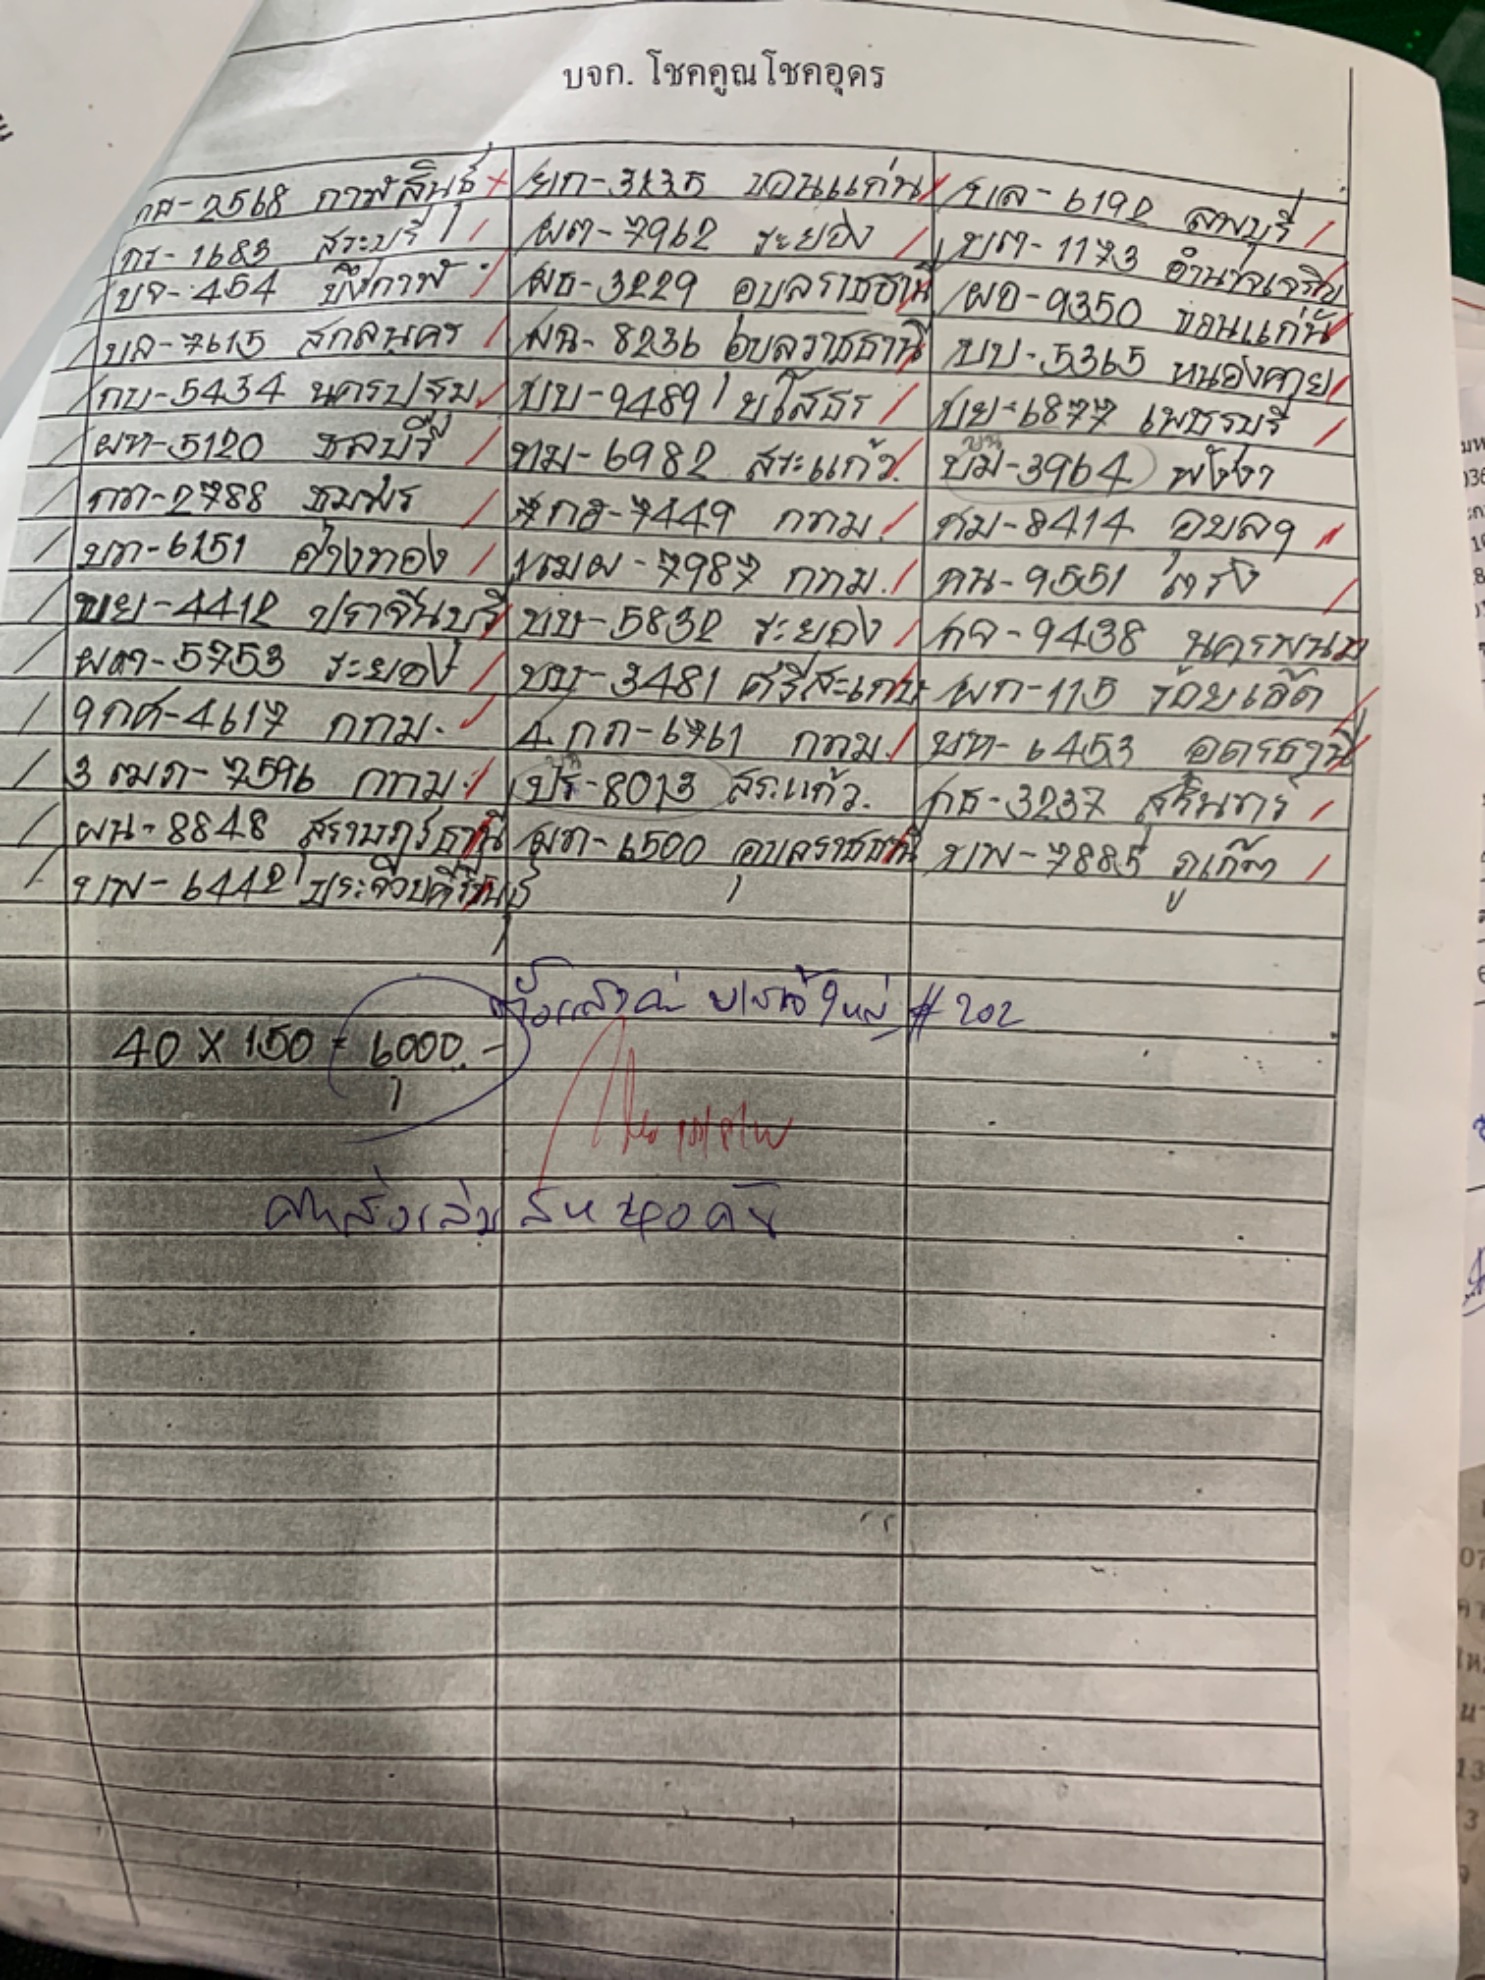 บจก. โชคคูณโชคอุดร
กศ-2568 กาฬสินธุ์ ยก-3235 ขอนแก่น บล-6192 ลพบุรี
กร-1683 สระบุรี ผต-7962 ระยอง บต-1173 อำนาจเจริญ
บจ-454 บึงกาฬ ผธ-3229 อุบลราชธานี ผอ-9350 ขอนแก่น
บล-7615 สกลนคร ผฉ-8236 อุบลราชธานี บบ-5365 หนองคาย
กบ-5434 นครปฐม บบ-9489 ยโสธร บย-6877 เพชรบุรี
ผท-5120 ชลบุรี ฒม-6982 สระแก้ว บม-3964 พังงา
กต-2788 ชุมพร 7กธ-7449 กทม. กม-8414 อุบลฯ
บท-6151 อ่างทอง 1ฒผ-7987 กทม. กน-9551 ตรัง
ขย-4412 ปราจีนบุรี บบ-5832 ระยอง กจ-9438 นครพนม
ผต-5753 ระยอง บบ-3481 ศรีสะเกษ ผก-115 ร้อยเอ็ด
9กศ-4617 กทม. 4กภ-6761 กทม. บท-6453 อุดรธานี
3ฒภ-7596 กทม. ปร-8013 สระแก้ว. กธ-3237 สุรินทร์
ผน-8848 สุราษฎร์ธานี ผท-6500 อุบลราชธานี บพ-7885 ภูเก็ต
บพ-6442 ประจวบคีรีขันธ์
ใหญ่ #202
40 X 150 = 6000.-